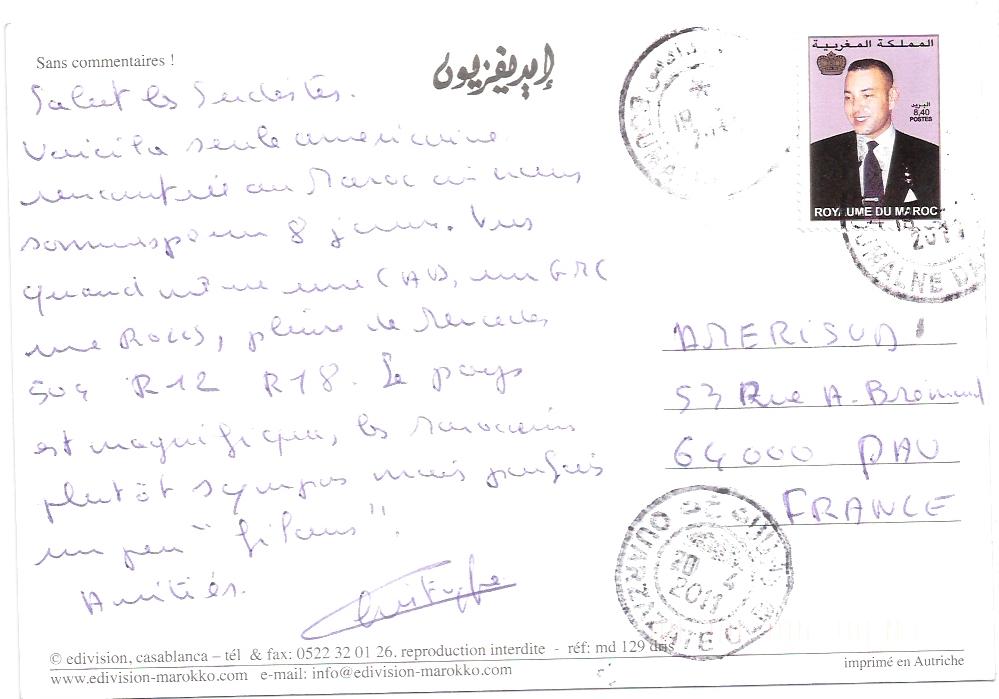 Sans commentaires !
إيديفزيون
Salut les Sudistes.
Voici la seule américaine
rencontrée au Maroc où nous
sommes pour 8 jours. Vus
quand même une (AV), un GMC
une ROLLS, pleins de Mercedes
504 R12 R18. Le pays
est magnifique, les marocains
plutôt sympas mais parfois
un peu " filous ".
Amitiés.
Christophe
المملكة المغربية
البريد
8,40
POSTES
ROYAUME DU MAROC
2011
AMERISUD
53 Rue A.
64000 PAU
FRANCE
OUARZAZATE
20 4
2011
© edivision, casablanca – tél & fax: 0522 32 01 26. reproduction interdite - réf: md 129 dris
www.edivision-marokko.com e-mail: info@edivision-marokko.com
imprimé en Autriche